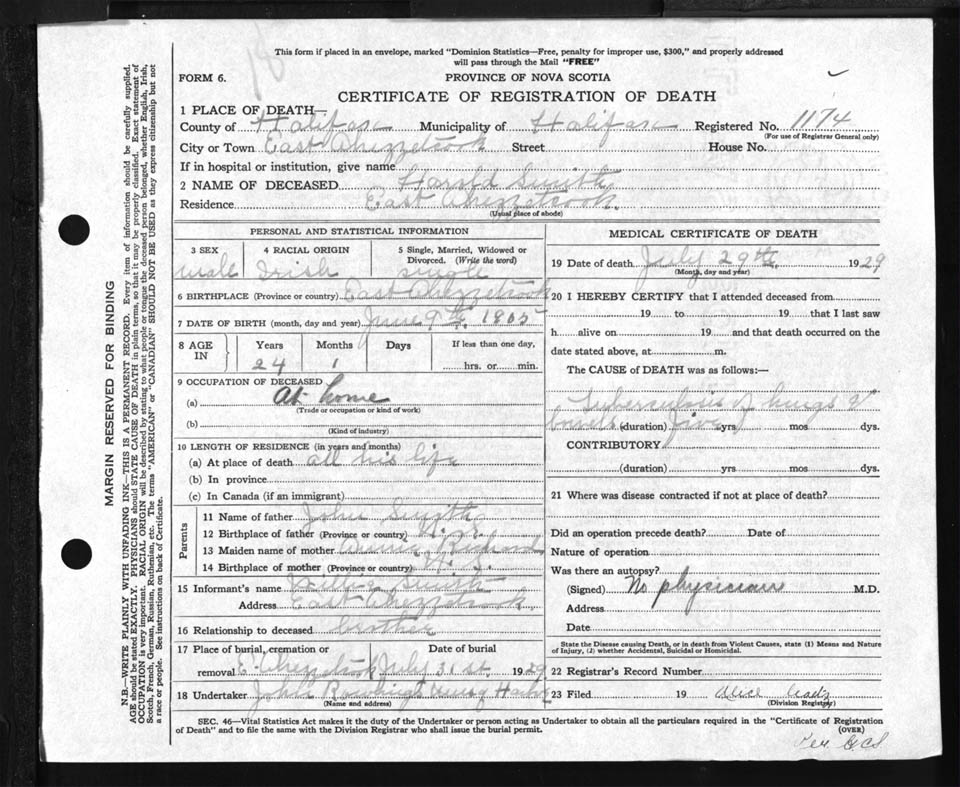 This form if placed in an envelope, marked "Dominion Statistics—Free, penalty for improper use, $300," and properly addressed
will pass through the Mail "FREE"
FORM 6.
PROVINCE OF NOVA SCOTIA
CERTIFICATE OF REGISTRATION OF DEATH
1 PLACE OF DEATH—
County of Halifax Municipality of Halifax Registered No. 1174
(For use of Registrar General only)
City or Town East Chezzetcook Street House No.
If in hospital or institution, give name
2 NAME OF DECEASED Harold Smith
Residence East Chezzetcook
(Usual place of abode)
MARGIN RESERVED FOR BINDING
N.B.—WRITE PLAINLY WITH UNFADING INK—THIS IS A PERMANENT RECORD. Every item of information should be carefully supplied.
AGE should be stated EXACTLY. PHYSICIANS should STATE CAUSE OF DEATH in plain terms, so that it may be properly classified. Exact statement of
OCCUPATION is very important. RACIAL ORIGIN will be described by stating to what people or tongue the deceased person belonged, whether English, Irish,
Scotch, French, German, Russian, Ruthenian, etc. The terms "AMERICAN" or "CANADIAN" SHOULD NOT BE USED as they express citizenship but not
a race or people. See instructions on back of Certificate.
PERSONAL AND STATISTICAL INFORMATION
3 SEX
male
4 RACIAL ORIGIN
Irish
5 Single, Married, Widowed or
Divorced. (Write the word)
single
6 BIRTHPLACE (Province or country) East Chezzetcook
7 DATE OF BIRTH (month, day and year) June 9th, 1905
8 AGE
IN
Years
24
Months
1
Days
If less than one day,
hrs. or min.
9 OCCUPATION OF DECEASED
(a) At home
(Trade or occupation or kind of work)
(b)
(Kind of industry)
10 LENGTH OF RESIDENCE (in years and months)
(a) At place of death all his life
(b) In province
(c) In Canada (if an immigrant)
Parents
11 Name of father John Smith
12 Birthplace of father (Province or country) N.S.
13 Maiden name of mother
14 Birthplace of mother (Province or country) N.S.
15 Informant's name Smith
Address East Chezzetcook
16 Relationship to deceased brother
17 Place of burial, cremation or
Date of burial
removal E. Chezzetcook July 31st, 1929
18 Undertaker John
(Name and address)
MEDICAL CERTIFICATE OF DEATH
19 Date of death July 29th 1929
(Month, day and year)
20 I HEREBY CERTIFY that I attended deceased from
19 to 19 that I last saw
h alive on 19 and that death occurred on the
date stated above, at m.
The CAUSE of DEATH was as follows:—
Tuberculosis of lungs &
bowels (duration) five yrs mos dys.
CONTRIBUTORY
(duration) yrs mos dys.
21 Where was disease contracted if not at place of death?
Did an operation precede death? Date of
Nature of operation
Was there an autopsy?
(Signed) No physician M.D.
Address
Date
State the Disease causing Death, or in death from Violent Causes, state (1) Means and Nature
of Injury, (2) whether Accidental, Suicidal or Homicidal.
22 Registrar's Record Number
23 Filed 19 Alice
(Division Registrar)
SEC. 46—Vital Statistics Act makes it the duty of the Undertaker or person acting as Undertaker to obtain all the particulars required in the "Certificate of Registration
of Death" and to file the same with the Division Registrar who shall issue the burial permit.
(OVER)